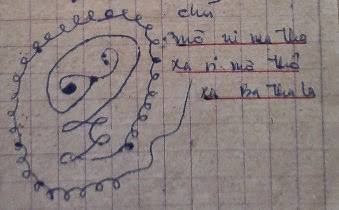 chú
mô ni ma tha
xa ni mô thô
xa Ba tha la